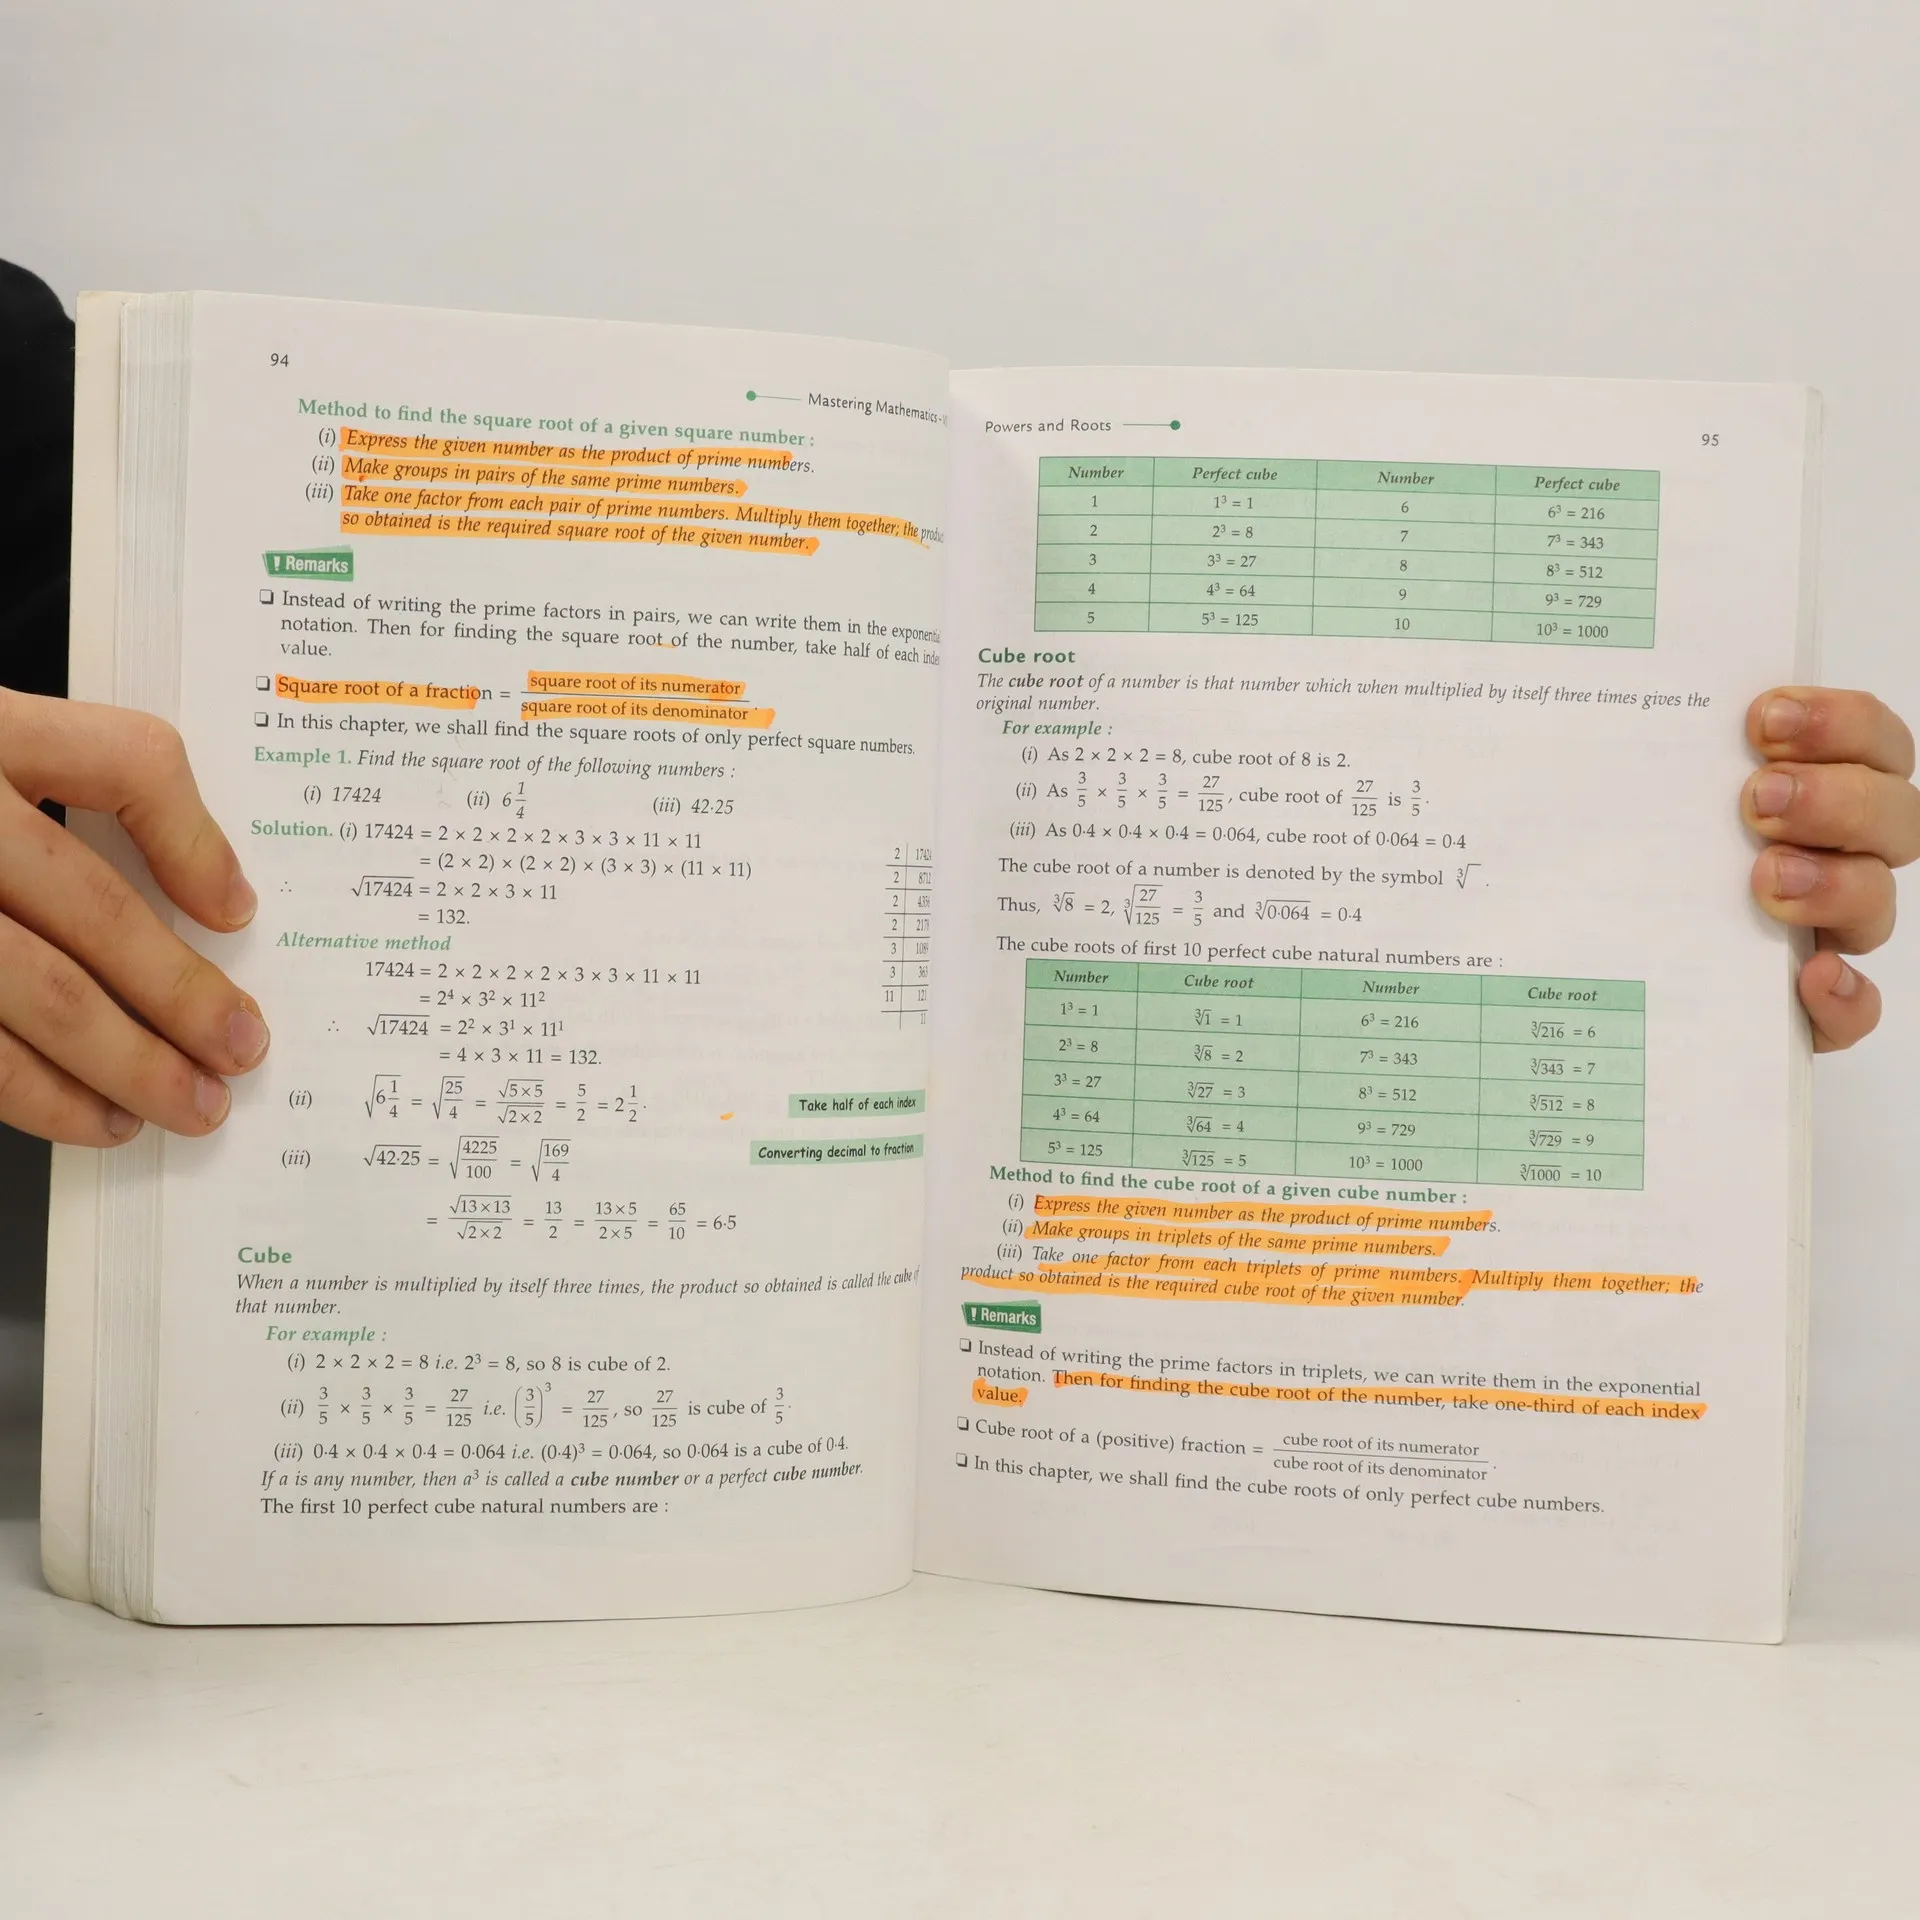 94
Mastering Mathematics -
Method to find the square root of a given square number :
(i) Express the given number as the product of prime numbers.
(ii) Make groups in pairs of the same prime numbers.
(iii) Take one factor from each pair of prime numbers. Multiply them together; the
so obtained is the required square root of the given number.
! Remarks
❑ Instead of writing the prime factors in pairs, we can write them in the
notation. Then for finding the square root of the number, take half of each
value.
❑ Square root of a fraction = square root of its numerator / square root of its denominator .
❑ In this chapter, we shall find the square roots of only perfect square numbers.
Example 1. Find the square root of the following numbers :
(i) 17424 (ii) 6 1/4 (iii) 42·25
Solution. (i) 17424 = 2 × 2 × 2 × 2 × 3 × 3 × 11 × 11
= (2 × 2) × (2 × 2) × (3 × 3) × (11 × 11)
∴ √17424 = 2 × 2 × 3 × 11
= 132.
2 | 17424
2 | 8712
2 | 4356
2 | 2178
3 | 1089
3 | 363
11 | 121
11
Alternative method
17424 = 2 × 2 × 2 × 2 × 3 × 3 × 11 × 11
= 2⁴ × 3² × 11²
∴ √17424 = 2² × 3¹ × 11¹
= 4 × 3 × 11 = 132.
Take half of each index
(ii) √(6 1/4) = √(25/4) = √(5×5)/√(2×2) = 5/2 = 2 1/2 .
Converting decimal to fraction
(iii) √42·25 = √(4225/100) = √(169/4)
= √(13×13)/√(2×2) = 13/2 = 13×5/2×5 = 65/10 = 6·5
Cube
When a number is multiplied by itself three times, the product so obtained is called the cube of
that number.
For example :
(i) 2 × 2 × 2 = 8 i.e. 2³ = 8, so 8 is cube of 2.
(ii) 3/5 × 3/5 × 3/5 = 27/125 i.e. (3/5)³ = 27/125 , so 27/125 is cube of 3/5 .
(iii) 0·4 × 0·4 × 0·4 = 0·064 i.e. (0·4)³ = 0·064, so 0·064 is a cube of 0·4.
If a is any number, then a³ is called a cube number or a perfect cube number.
The first 10 perfect cube natural numbers are :
Powers and Roots
95
Number Perfect cube Number Perfect cube
1 1³ = 1 6 6³ = 216
2 2³ = 8 7 7³ = 343
3 3³ = 27 8 8³ = 512
4 4³ = 64 9 9³ = 729
5 5³ = 125 10 10³ = 1000
Cube root
The cube root of a number is that number which when multiplied by itself three times gives the
original number.
For example :
(i) As 2 × 2 × 2 = 8, cube root of 8 is 2.
(ii) As 3/5 × 3/5 × 3/5 = 27/125 , cube root of 27/125 is 3/5 .
(iii) As 0·4 × 0·4 × 0·4 = 0·064, cube root of 0·064 = 0·4
The cube root of a number is denoted by the symbol ∛ .
Thus, ∛8 = 2, ∛(27/125) = 3/5 and ∛0·064 = 0·4
The cube roots of first 10 perfect cube natural numbers are :
Number Cube root Number Cube root
1³ = 1 ∛1 = 1 6³ = 216 ∛216 = 6
2³ = 8 ∛8 = 2 7³ = 343 ∛343 = 7
3³ = 27 ∛27 = 3 8³ = 512 ∛512 = 8
4³ = 64 ∛64 = 4 9³ = 729 ∛729 = 9
5³ = 125 ∛125 = 5 10³ = 1000 ∛1000 = 10
Method to find the cube root of a given cube number :
(i) Express the given number as the product of prime numbers.
(ii) Make groups in triplets of the same prime numbers.
(iii) Take one factor from each triplets of prime numbers. Multiply them together; the
product so obtained is the required cube root of the given number.
! Remarks
❑ Instead of writing the prime factors in triplets, we can write them in the exponential
notation. Then for finding the cube root of the number, take one-third of each index
value.
❑ Cube root of a (positive) fraction = cube root of its numerator / cube root of its denominator .
❑ In this chapter, we shall find the cube roots of only perfect cube numbers.